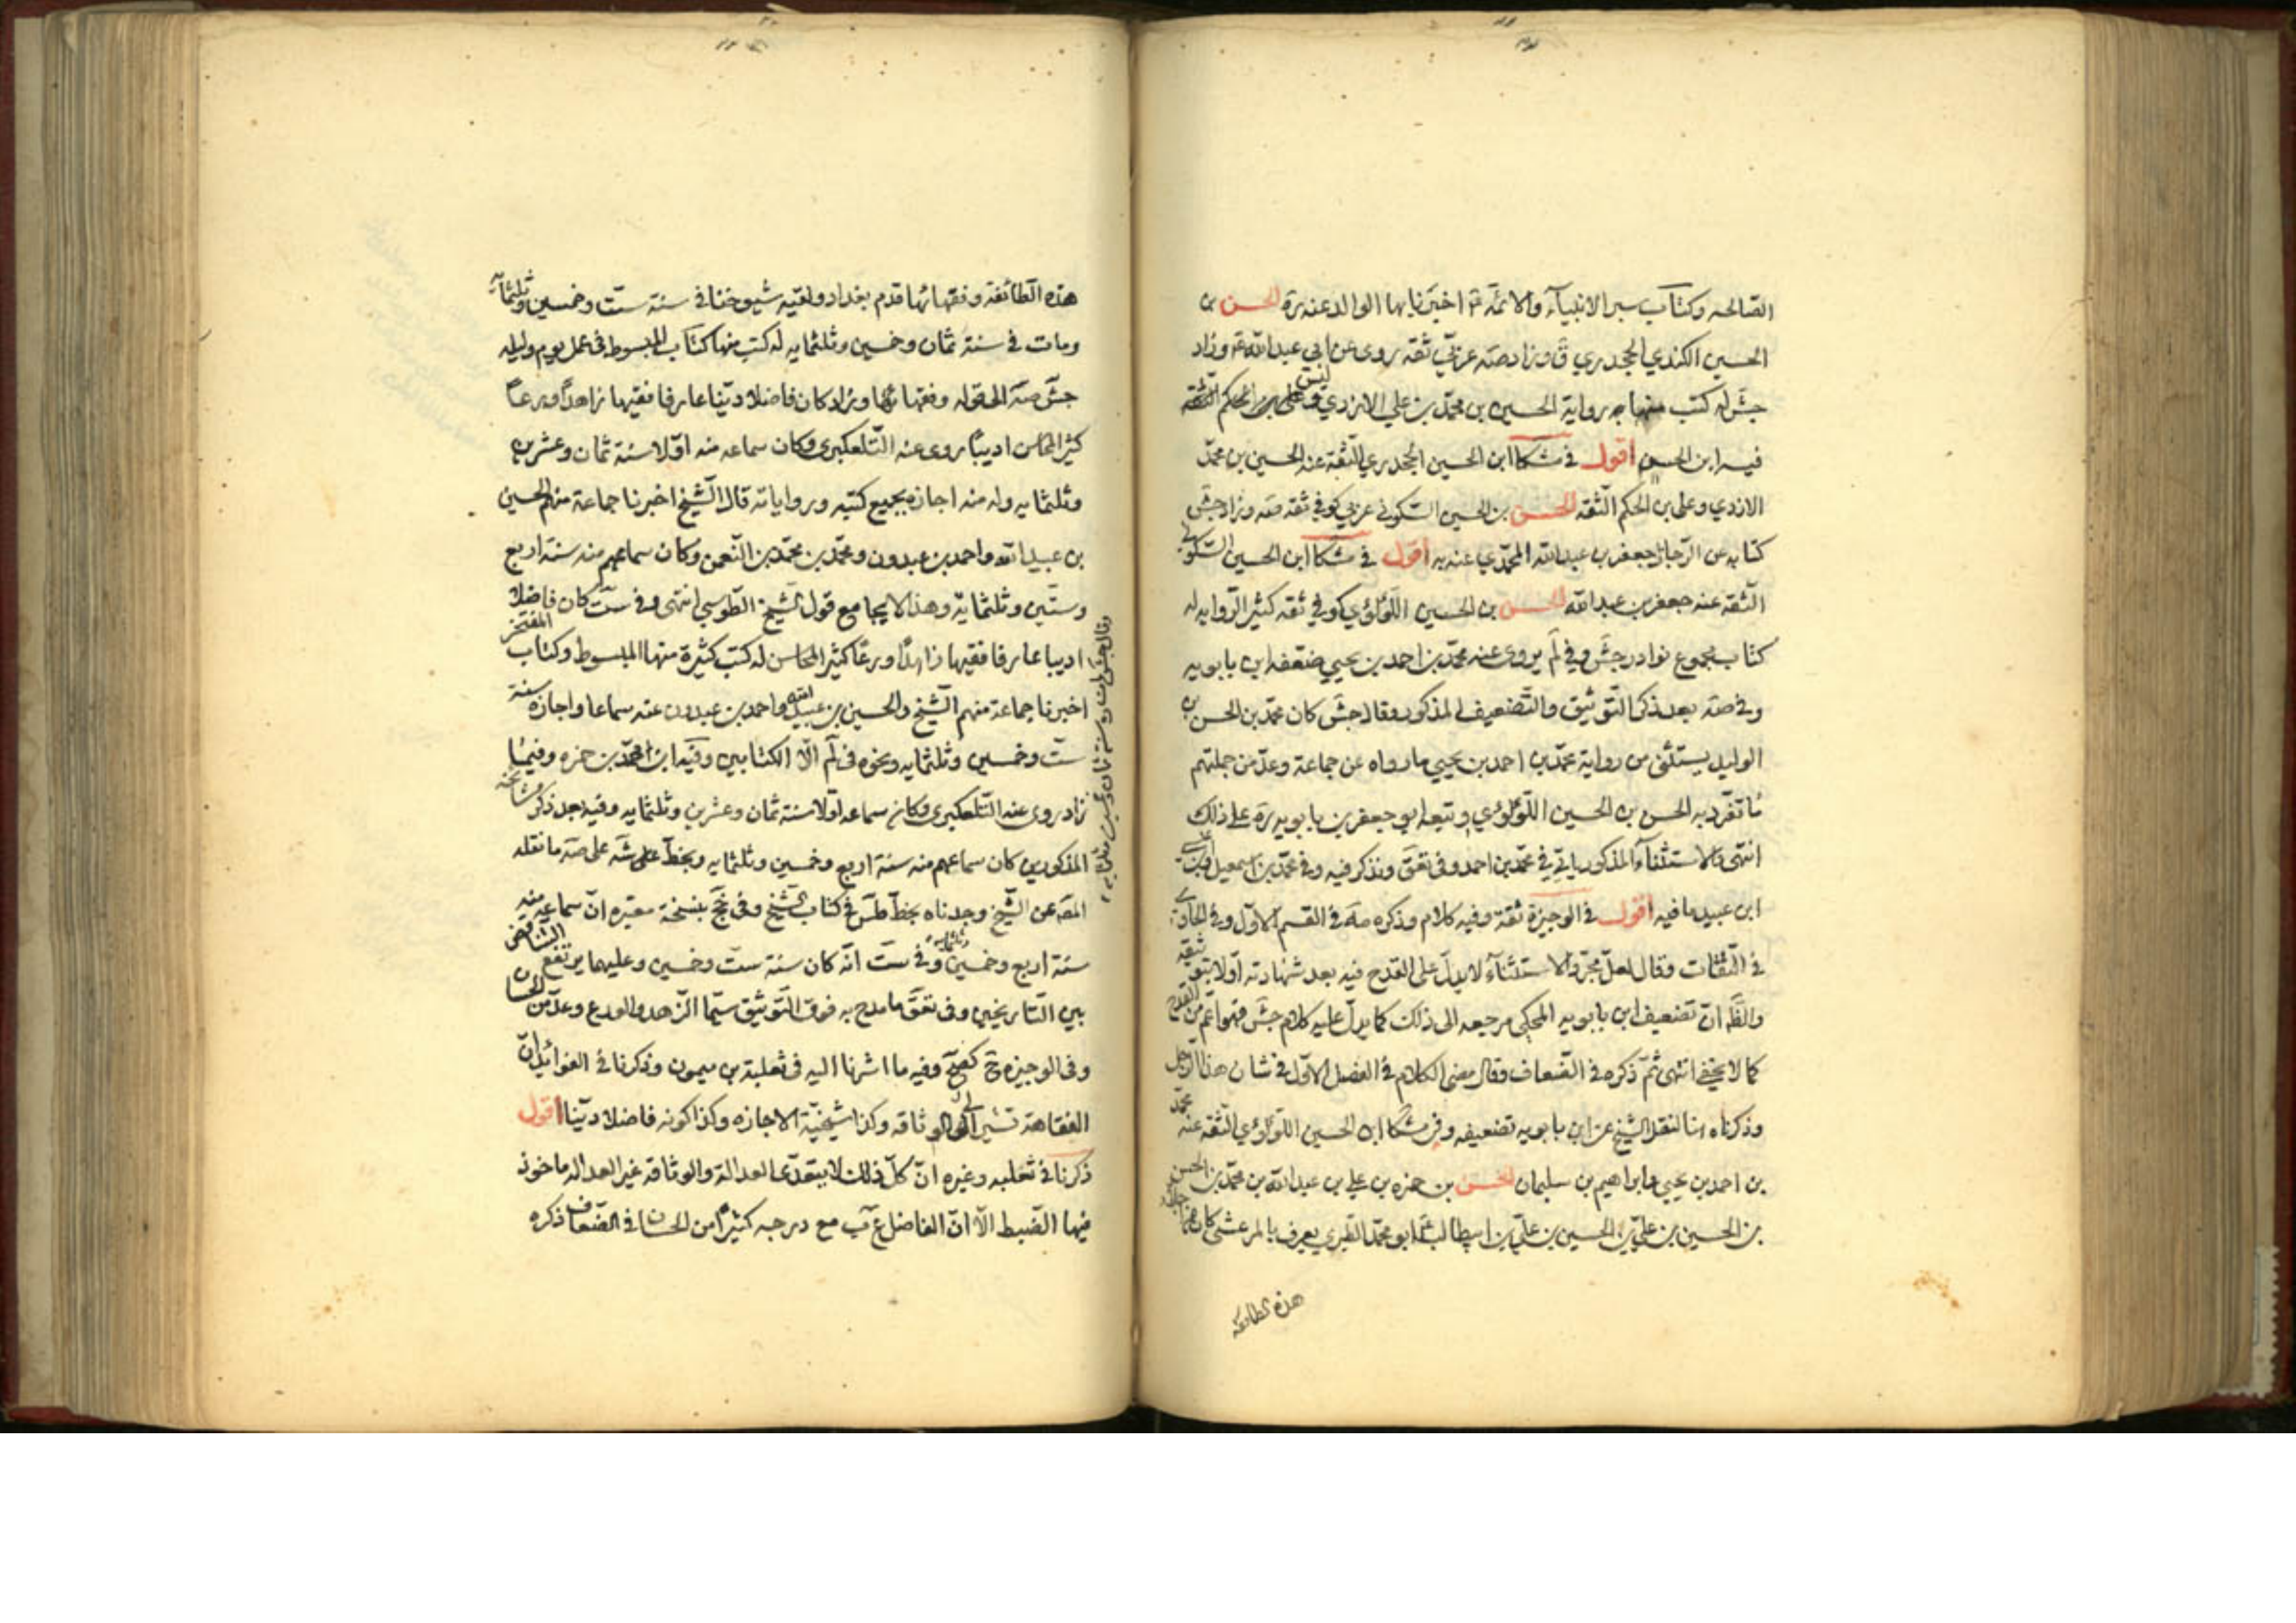 الصالحه وكتاب سير الانبياء والائمة ع اخبرنا بها الوالد عنه ره الحسن بن
الحسين الكندي الجحدري ق وزاد صه عربي ثقه روى عن ابي عبدالله ع وزاد
جش له كتب منها به رواية الحسين بن محمد بن علي الازدي وعلى بن الحكم الثقة
فيه ابن الحسين اقول في مشكا ابن الحسين الجحدري الثقة عنه الحسين بن محمد
الازدي وعلى بن الحكم الثقه الحسن بن الحسين السكوني عربي كوفي ثقه صه وزاد جش
كتابه عن الرجال جعفر بن عبدالله المحمدي عنه به اقول في مشكا ابن الحسين السكوني
الثقه عنه جعفر بن عبدالله الحسن بن الحسين اللؤلؤي كوفي ثقه كثير الروايه له
كتاب مجموع نوادر جش وفي لم يروى عنه محمد بن احمد بن يحيى ضعفه ابن بابويه
وفي صه بعد ذكر التوثيق والتضعيف المذكور وقال جش كان محمد بن الحسن بن
الوليد يستثنى من رواية محمد بن احمد بن يحيى ما رواه عن جماعة وعد من جملتهم
ما تفرد به الحسن بن الحسين اللؤلؤي وتبعه ابو جعفر بن بابويه ره على ذلك
انتهى والاستثناء المذكور ياتي في محمد بن احمد وفي تعق ونذكر فيه وفي محمد بن اسمعيل
ابن عبيد ما فيه اقول في الوجيزة ثقة وفيه كلام وذكره صه في القسم الاول وفي الحاوي
في الثقات وقال لعل مجرد الاستثناء لا يدل على القدح فيه بعد شهادته اولا بتوثيقه
والظ ان تضعيف ابن بابويه المحكى مرجعه الى ذلك كما يدل عليه كلام جش فهو اعم من القدح
كما لا يخفى انتهى ثم ذكره في الضعاف وقال مضى الكلام في الفصل الاول في شان هذا الرجل
وذكرناه هنا لنقل الشيخ عن ابن بابويه تضعيفه وفي مشكا ابن الحسين اللؤلؤي الثقه عنه محمد
بن احمد بن يحيى وابراهيم بن سليمان الحسن بن حمزه بن علي بن عبدالله بن محمد بن الحسن
بن الحسين بن علي بن الحسين بن علي بن ابيطالب ع ابو محمد الطبري يعرف بالمرعشي كان من اجلاء
هذه الطائفه
هذه الطائفة وفقهائها قدم بغداد ولقيه شيوخنا في سنة ست وخمسين وثلثمائة
ومات في سنة ثمان وخمسين وثلثمايه له كتب منها كتاب المبسوط في عمل يوم وليله
جش صه الى قوله وفقهائها وزاد كان فاضلا دينا عارفا فقيها زاهدا ورعا
كثير المحاسن اديبا روى عنه التلعكبرى وكان سماعه منه اولا سنة ثمان وعشرين
وثلثمايه وله منه اجازه بجميع كتبه ورواياته قال الشيخ اخبرنا جماعة منهم الحسين
بن عبيدالله واحمد بن عبدون ومحمد بن محمد بن النعمن وكان سماعهم منه سنة اربع
وستين وثلثمائة وهذا لا يجامع قول الشيخ الطوسي انتهى وفي ست كان فاضلا
اديبا عارفا فقيها زاهدا ورعا كثير المحاسن له كتب كثيرة منها المبسوط وكتاب المفتخر
اخبرنا جماعة منهم الشيخ والحسين بن عبيدالله واحمد بن عبدون عنه سماعا واجازة سنة
ست وخمسين وثلثمايه ونحوه في لم الا الكتابين وفيه ابن محمد بن حمزه وفيها
زاد روى عنه التلعكبرى وكان سماعه اولا سنة ثمان وعشرين وثلثمايه وفيه بعد ذكر مشايخه
المذكورين كان سماعهم منه سنة اربع وخمسين وثلثمايه وبخط شه على صه ما نقله
المص عن الشيخ وجدناه بخط طس في كتاب الشيخ وفي جخ بنسخة معتبره ان سماعهم منه
سنة اربع وخمسين وثلثمايه وفي ست انه كان سنة ست وخمسين وعليهما يرتفع التناقض
بين التاريخين وفي تعق ما مدح به فوق التوثيق سيما الزهد والورع وعد من الحسان
وفي الوجيزه ح كصح وفيه ما اشرنا اليه في ثعلبة بن ميمون وذكرنا في الفوائد ان
الفقاهة تشير الى الوثاقه وكذا شيخية الاجازه وكذا كونه فاضلا دينا اقول
ذكرنا في ثعلبه وغيره ان كل ذلك لا يتعدى العدالة والوثاقة غير العداله ماخوذ
فيها الضبط الا ان الفاضل ع ب مع درجه كثيرا من الحسان في الضعاف ذكره